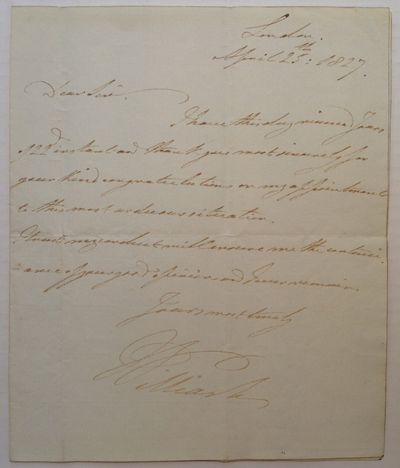 London.
April 25th: 1827.
Dear Sir.
I have this day received Yours
22d instant and thank you most sincerely for
your kind congratulations on my appointment
to this most arduous situation.
I trust my conduct will ensure me the continu:
:ance of your good opinion and I ever remain
Yours most truly
William